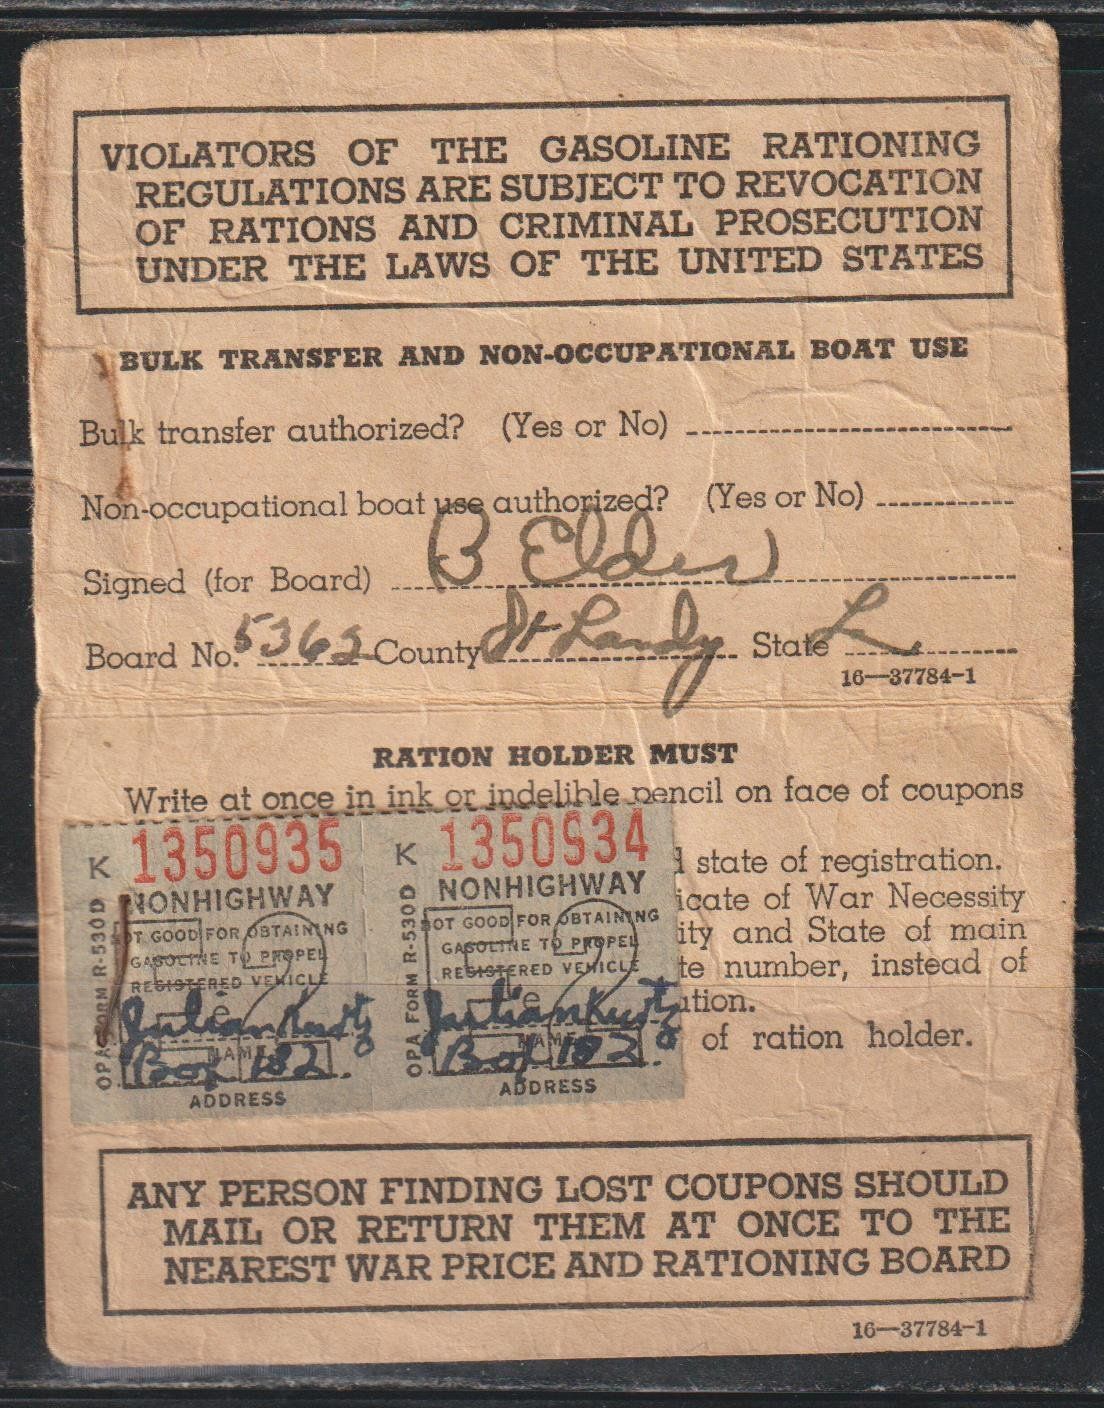 VIOLATORS OF THE GASOLINE RATIONING
REGULATIONS ARE SUBJECT TO REVOCATION
OF RATIONS AND CRIMINAL PROSECUTION
UNDER THE LAWS OF THE UNITED STATES
BULK TRANSFER AND NON-OCCUPATIONAL BOAT USE
Bulk transfer authorized? (Yes or No)
Non-occupational boat use authorized? (Yes or No)
Signed (for Board) B Elder
Board No. 5362 County St Landry State La.
16—37784-1
RATION HOLDER MUST
Write at once in ink or indelible pencil on face of coupons
state of registration.
of War Necessity
and State of main
number, instead of
of ration holder.
K 1350935
NONHIGHWAY
NOT GOOD FOR OBTAINING
GASOLINE TO PROPEL
REGISTERED VEHICLE
Julian Kurtz
NAME
Box 182
ADDRESS
OPA FORM R-530D
K 1350934
NONHIGHWAY
NOT GOOD FOR OBTAINING
GASOLINE TO PROPEL
REGISTERED VEHICLE
Julian Kurtz
NAME
Box 182
ADDRESS
OPA FORM R-530D
ANY PERSON FINDING LOST COUPONS SHOULD
MAIL OR RETURN THEM AT ONCE TO THE
NEAREST WAR PRICE AND RATIONING BOARD
16—37784-1